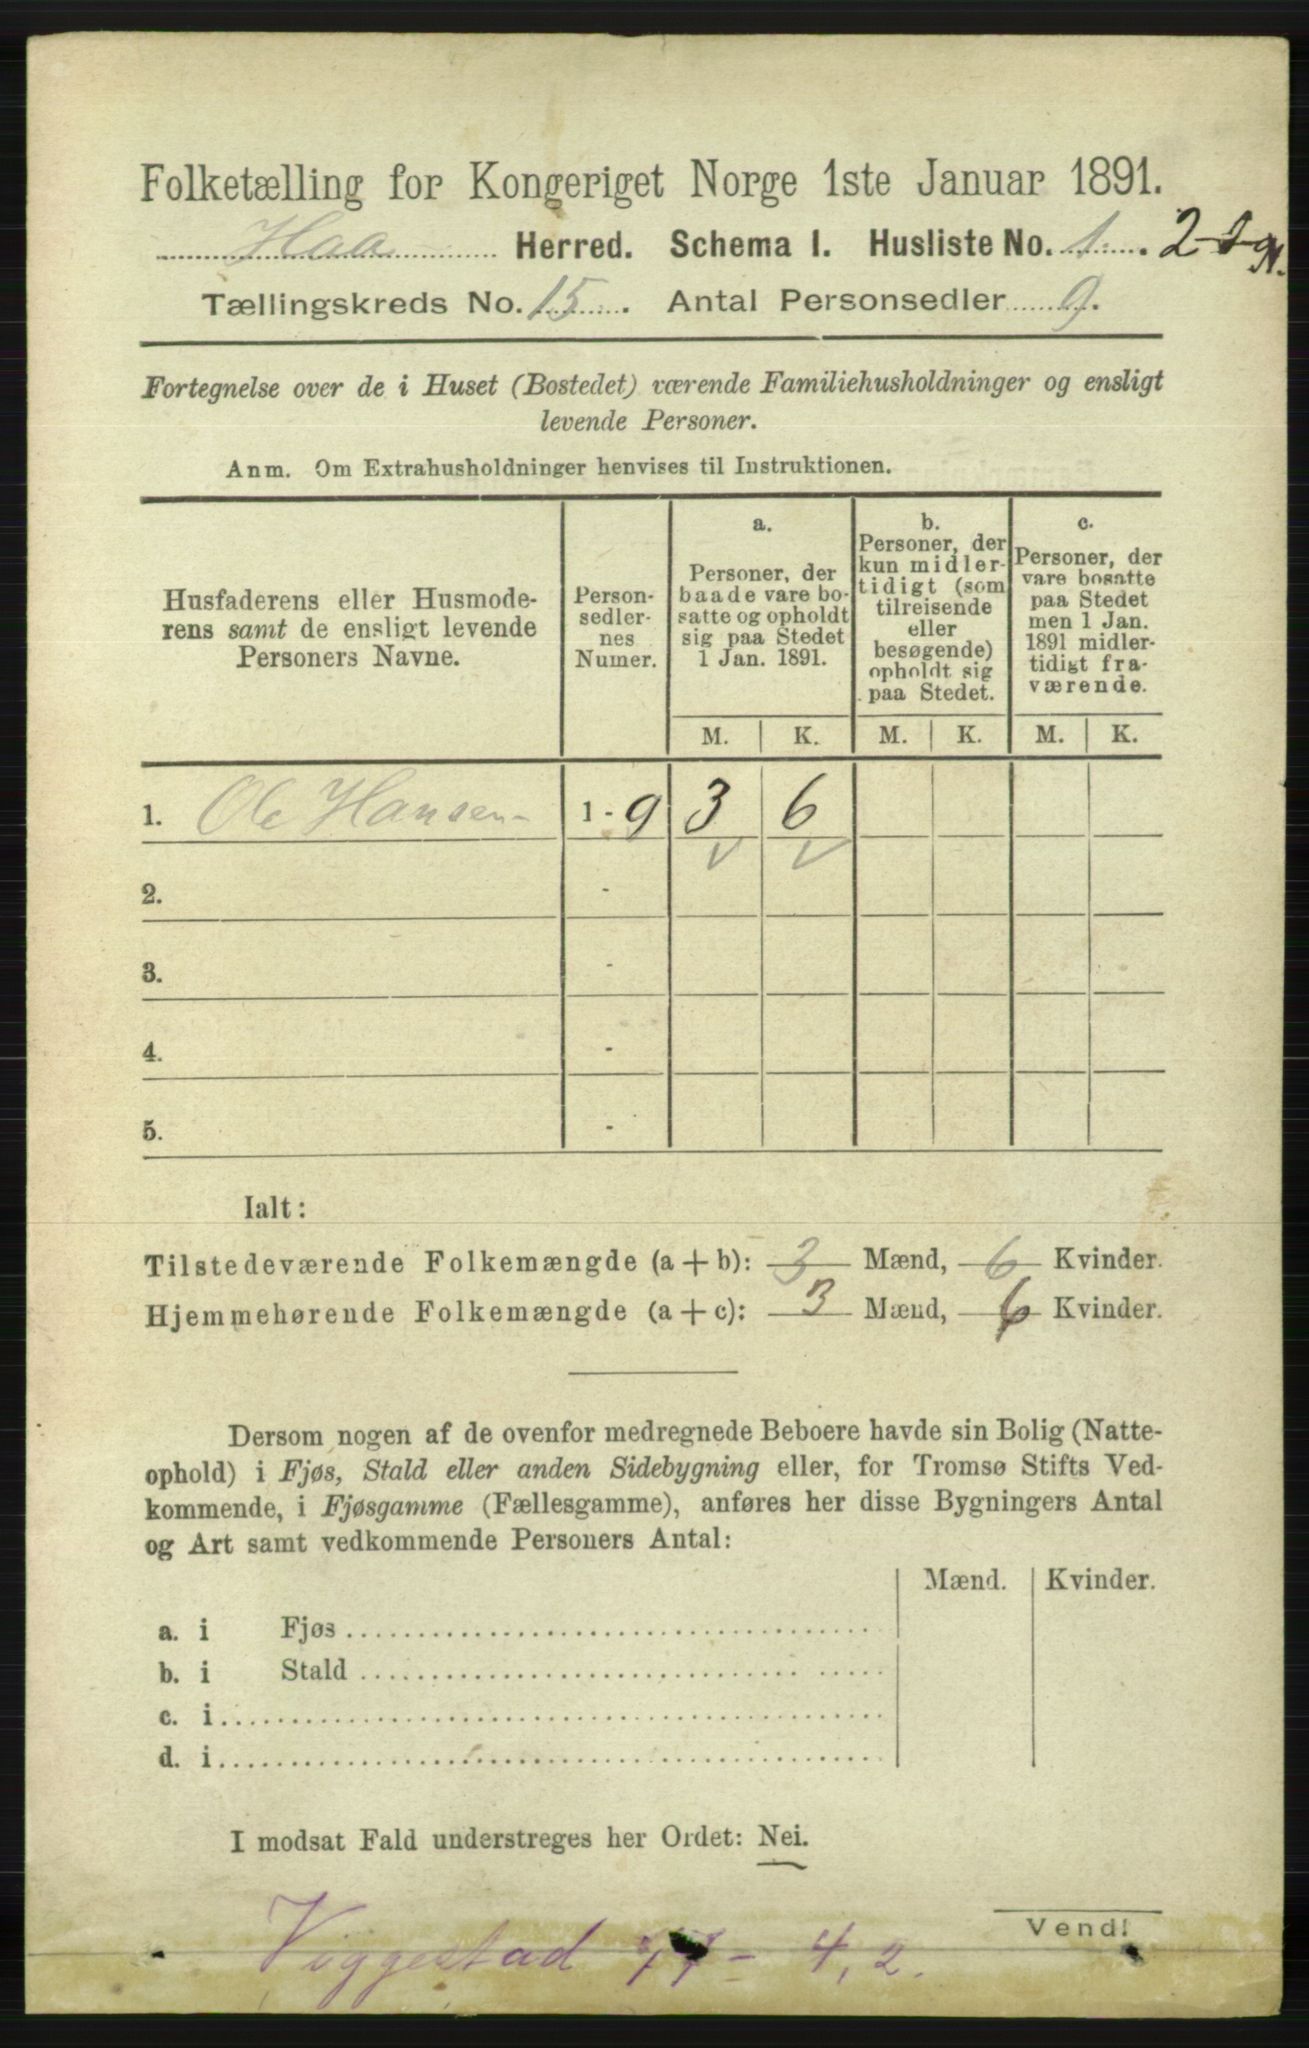 Folketælling for Kongeriget Norge 1ste Januar 1891.
Haa Herred. Schema I. Husliste No. 1. 2-1-91.
Tællingskreds No. 15. Antal Personsedler 9.
Fortegnelse over de i Huset (Bostedet) værende Familiehusholdninger og ensligt
levende Personer.
Anm. Om Extrahusholdninger henvises til Instruktionen.
Husfaderens eller Husmode-
rens samt de ensligt levende
Personers Navne.
Person-
sedler-
nes
Numer.
a.
Personer, der
baade vare bo-
satte og opholdt
sig paa Stedet
1 Jan. 1891.
b.
Personer, der
kun midler-
tidigt (som
tilreisende
eller
besøgende)
opholdt sig
paa Stedet.
c.
Personer, der
vare bosatte
paa Stedet
men 1 Jan.
1891 midler-
tidigt fra-
værende.
M. K. M. K. M. K.
1. Ole Hansen 1 - 9 3 6
2. -
3. -
4. -
5. -
Ialt:
Tilstedeværende Folkemængde (a + b): 3 Mænd, 6 Kvinder.
Hjemmehørende Folkemængde (a + c): 3 Mænd, 6 Kvinder.
Dersom nogen af de ovenfor medregnede Beboere havde sin Bolig (Natte-
ophold) i Fjøs, Stald eller anden Sidebygning eller, for Tromsø Stifts Ved-
kommende, i Fjøsgamme (Fællesgamme), anføres her disse Bygningers Antal
og Art samt vedkommende Personers Antal:
Mænd. Kvinder.
a. i Fjøs
b. i Stald
c. i
d. i
I modsat Fald understreges her Ordet: Nei.
Vend!
Viggestad - 4,2.